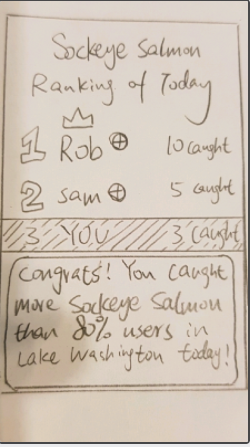 Sockeye Salmon
Ranking of Today
1 Rob 10 caught
2 Sam 5 caught
3 YOU 3 caught
Congrats! You caught
more Sockeye Salmon
than 80% users in
Lake Washington today!